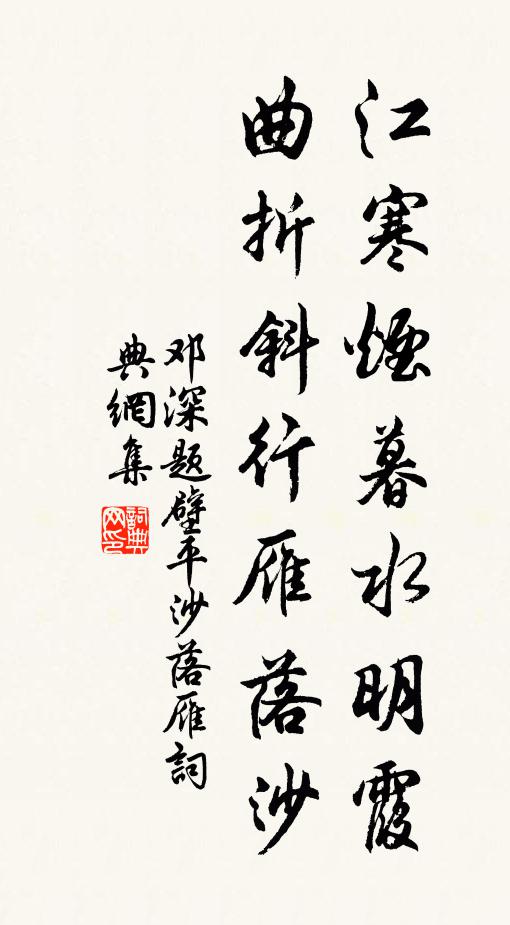 江寒烟暮水明霞
曲折斜行雁落沙
邓深题壁平沙落雁詞
典網集
詞典网印